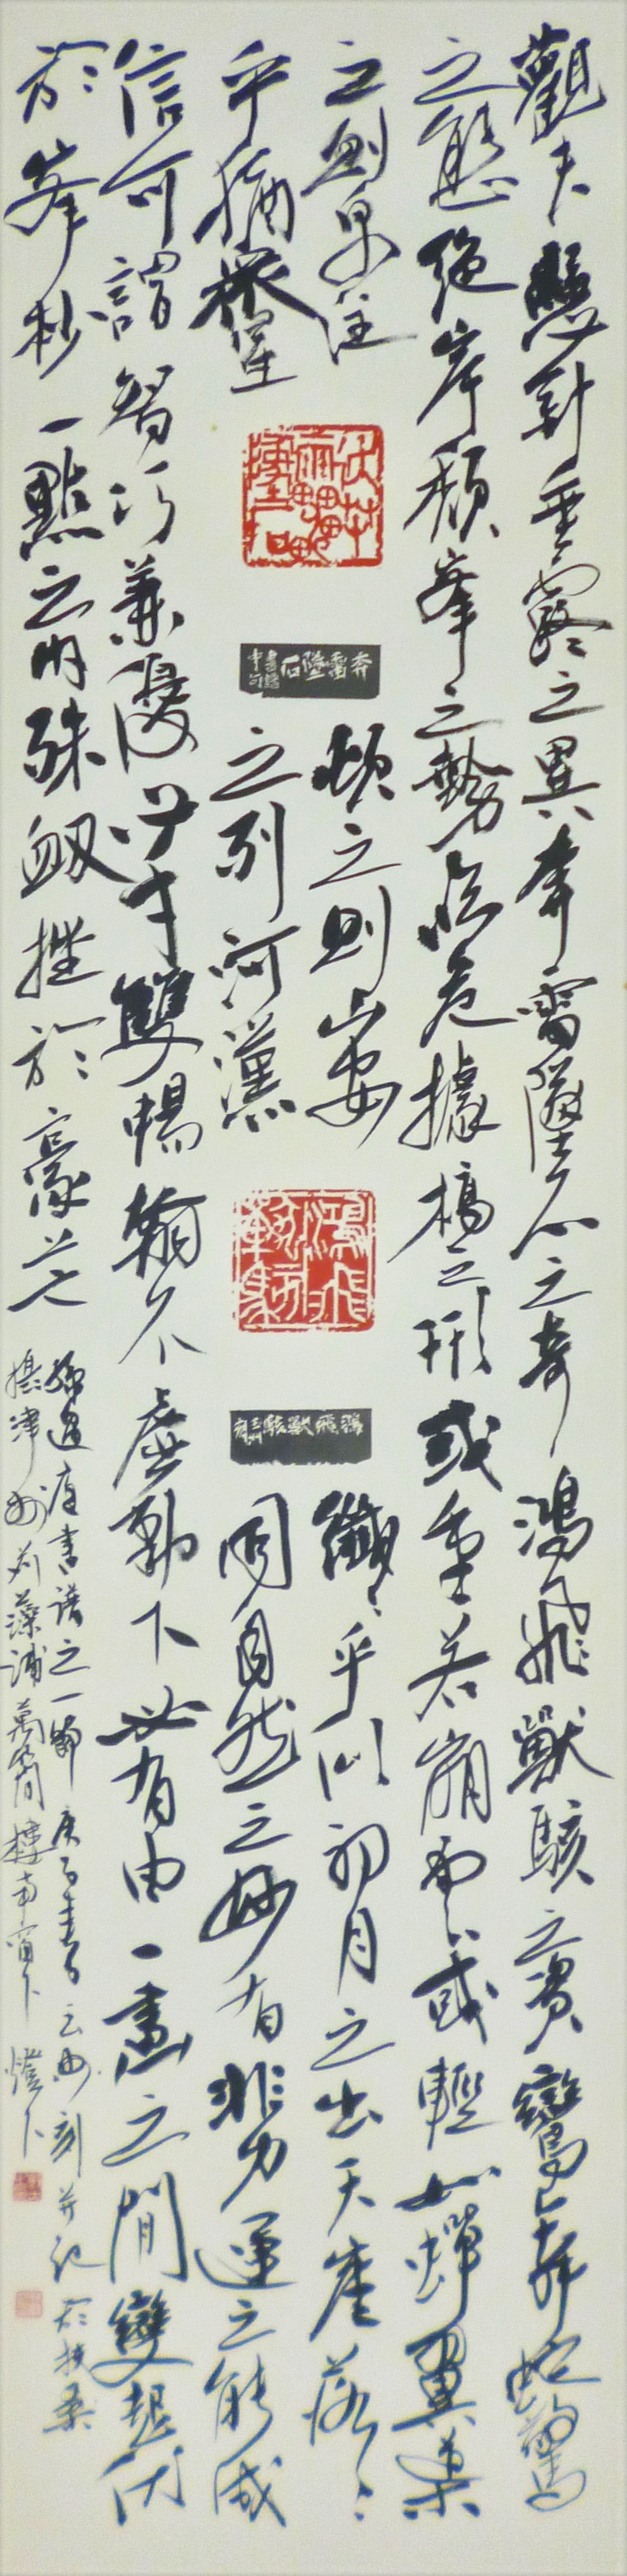 觀夫懸針垂露之異奔雷墜石之奇鴻飛獸駭之資鸞舞蛇驚
之態絕岸頹峯之勢臨危據槁之形或重若崩雲或輕如蟬翼導
之則泉注頓之則山安纖纖乎似初月之出天崖落落
乎猶衆星之列河漢同自然之妙有非力運之能成
信可謂智巧兼優心手雙暢翰不虛動下必有由一畫之間變起伏
於峯杪一點之內殊衄挫於豪芒
孫過庭書譜之一節庚子春刻并記於扶桑
攝津州刈藻浦萬樓南窗下燈下
奔雷墜石
鴻飛獸駭